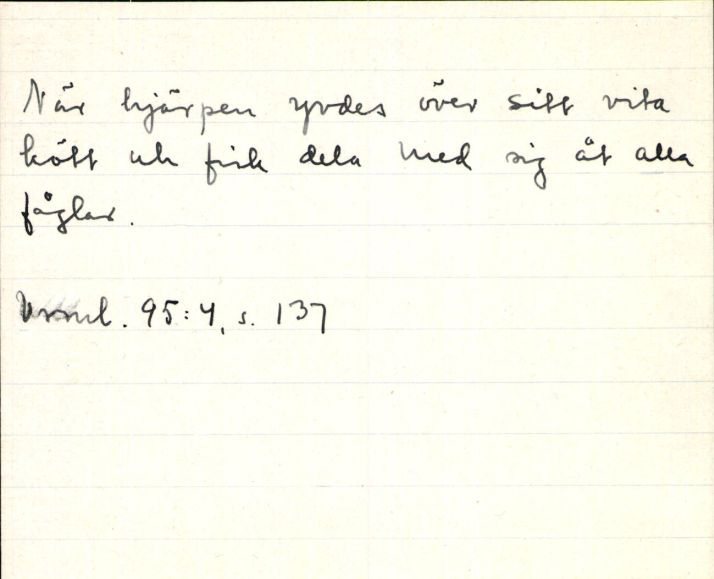 När hjärpen yvdes över sitt vita
kött och fick dela med sig åt alla
fåglar.
Vrml. 95:4, s. 137